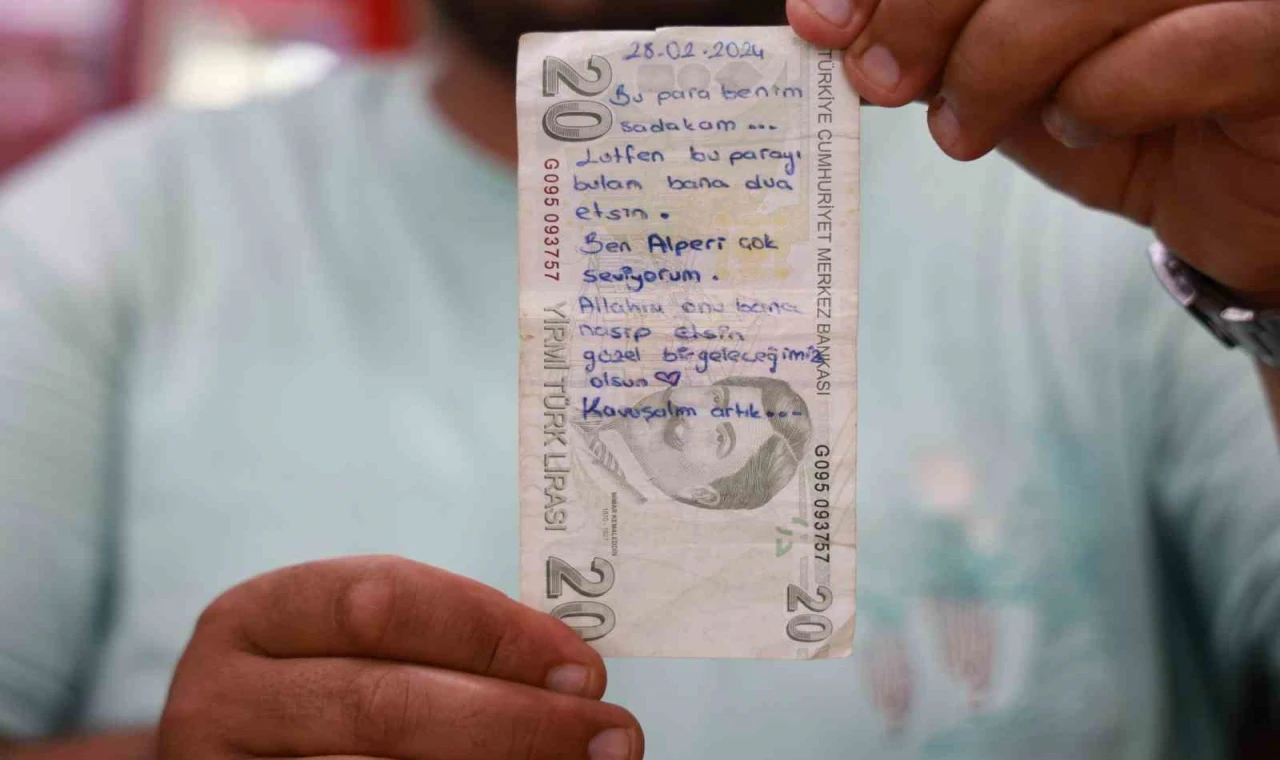 28-02-2024
Bu para benim
sadakam ...
Lutfen bu parayı
bulan bana dua
etsın.
Ben Alperi çok
seviyorum.
Allahım onu bana
nasip etsin
güzel bir geleceğimiz
olsun ♡
Kavuşalım artık...
20
G095 093757
YİRMİ TÜRK LİRASI
20
TÜRKİYE CUMHURİYET MERKEZ BANKASI
G095 093757
20
MİMAR KEMALEDDİN
1870 - 1927